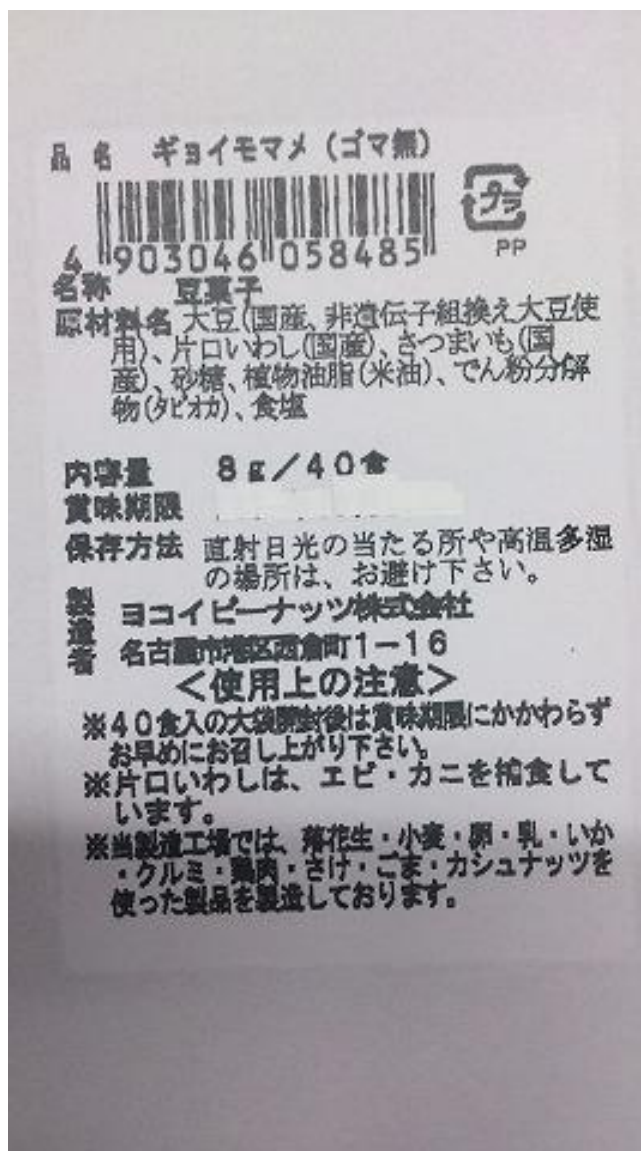 品 名 ギョイモマメ(ゴマ無)
プラ
PP
4 903046 058485
名称 豆菓子
原材料名 大豆(国産、非遺伝子組換え大豆使
用)、片口いわし(国産)、さつまいも(国
産)、砂糖、植物油脂(米油)、でん粉分解
物(タピオカ)、食塩
内容量 8g/40食
賞味期限
保存方法 直射日光の当たる所や高温多湿
の場所は、お避け下さい。
製造者 ヨコイピーナッツ株式会社
名古屋市港区西倉町1-16
<使用上の注意>
※40食入の大袋開封後は賞味期限にかかわらず
お早めにお召し上がり下さい。
※片口いわしは、エビ・カニを捕食して
います。
※当製造工場では、落花生・小麦・卵・乳・いか
・クルミ・鶏肉・さけ・ごま・カシュナッツを
使った製品を製造しております。